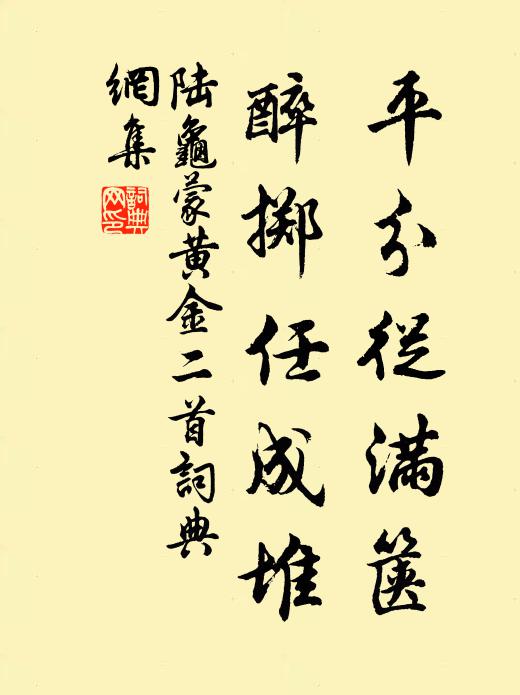 平分從滿篋
醉擲任成堆
陸龜蒙黄金二首詞典
網集
詞典網印